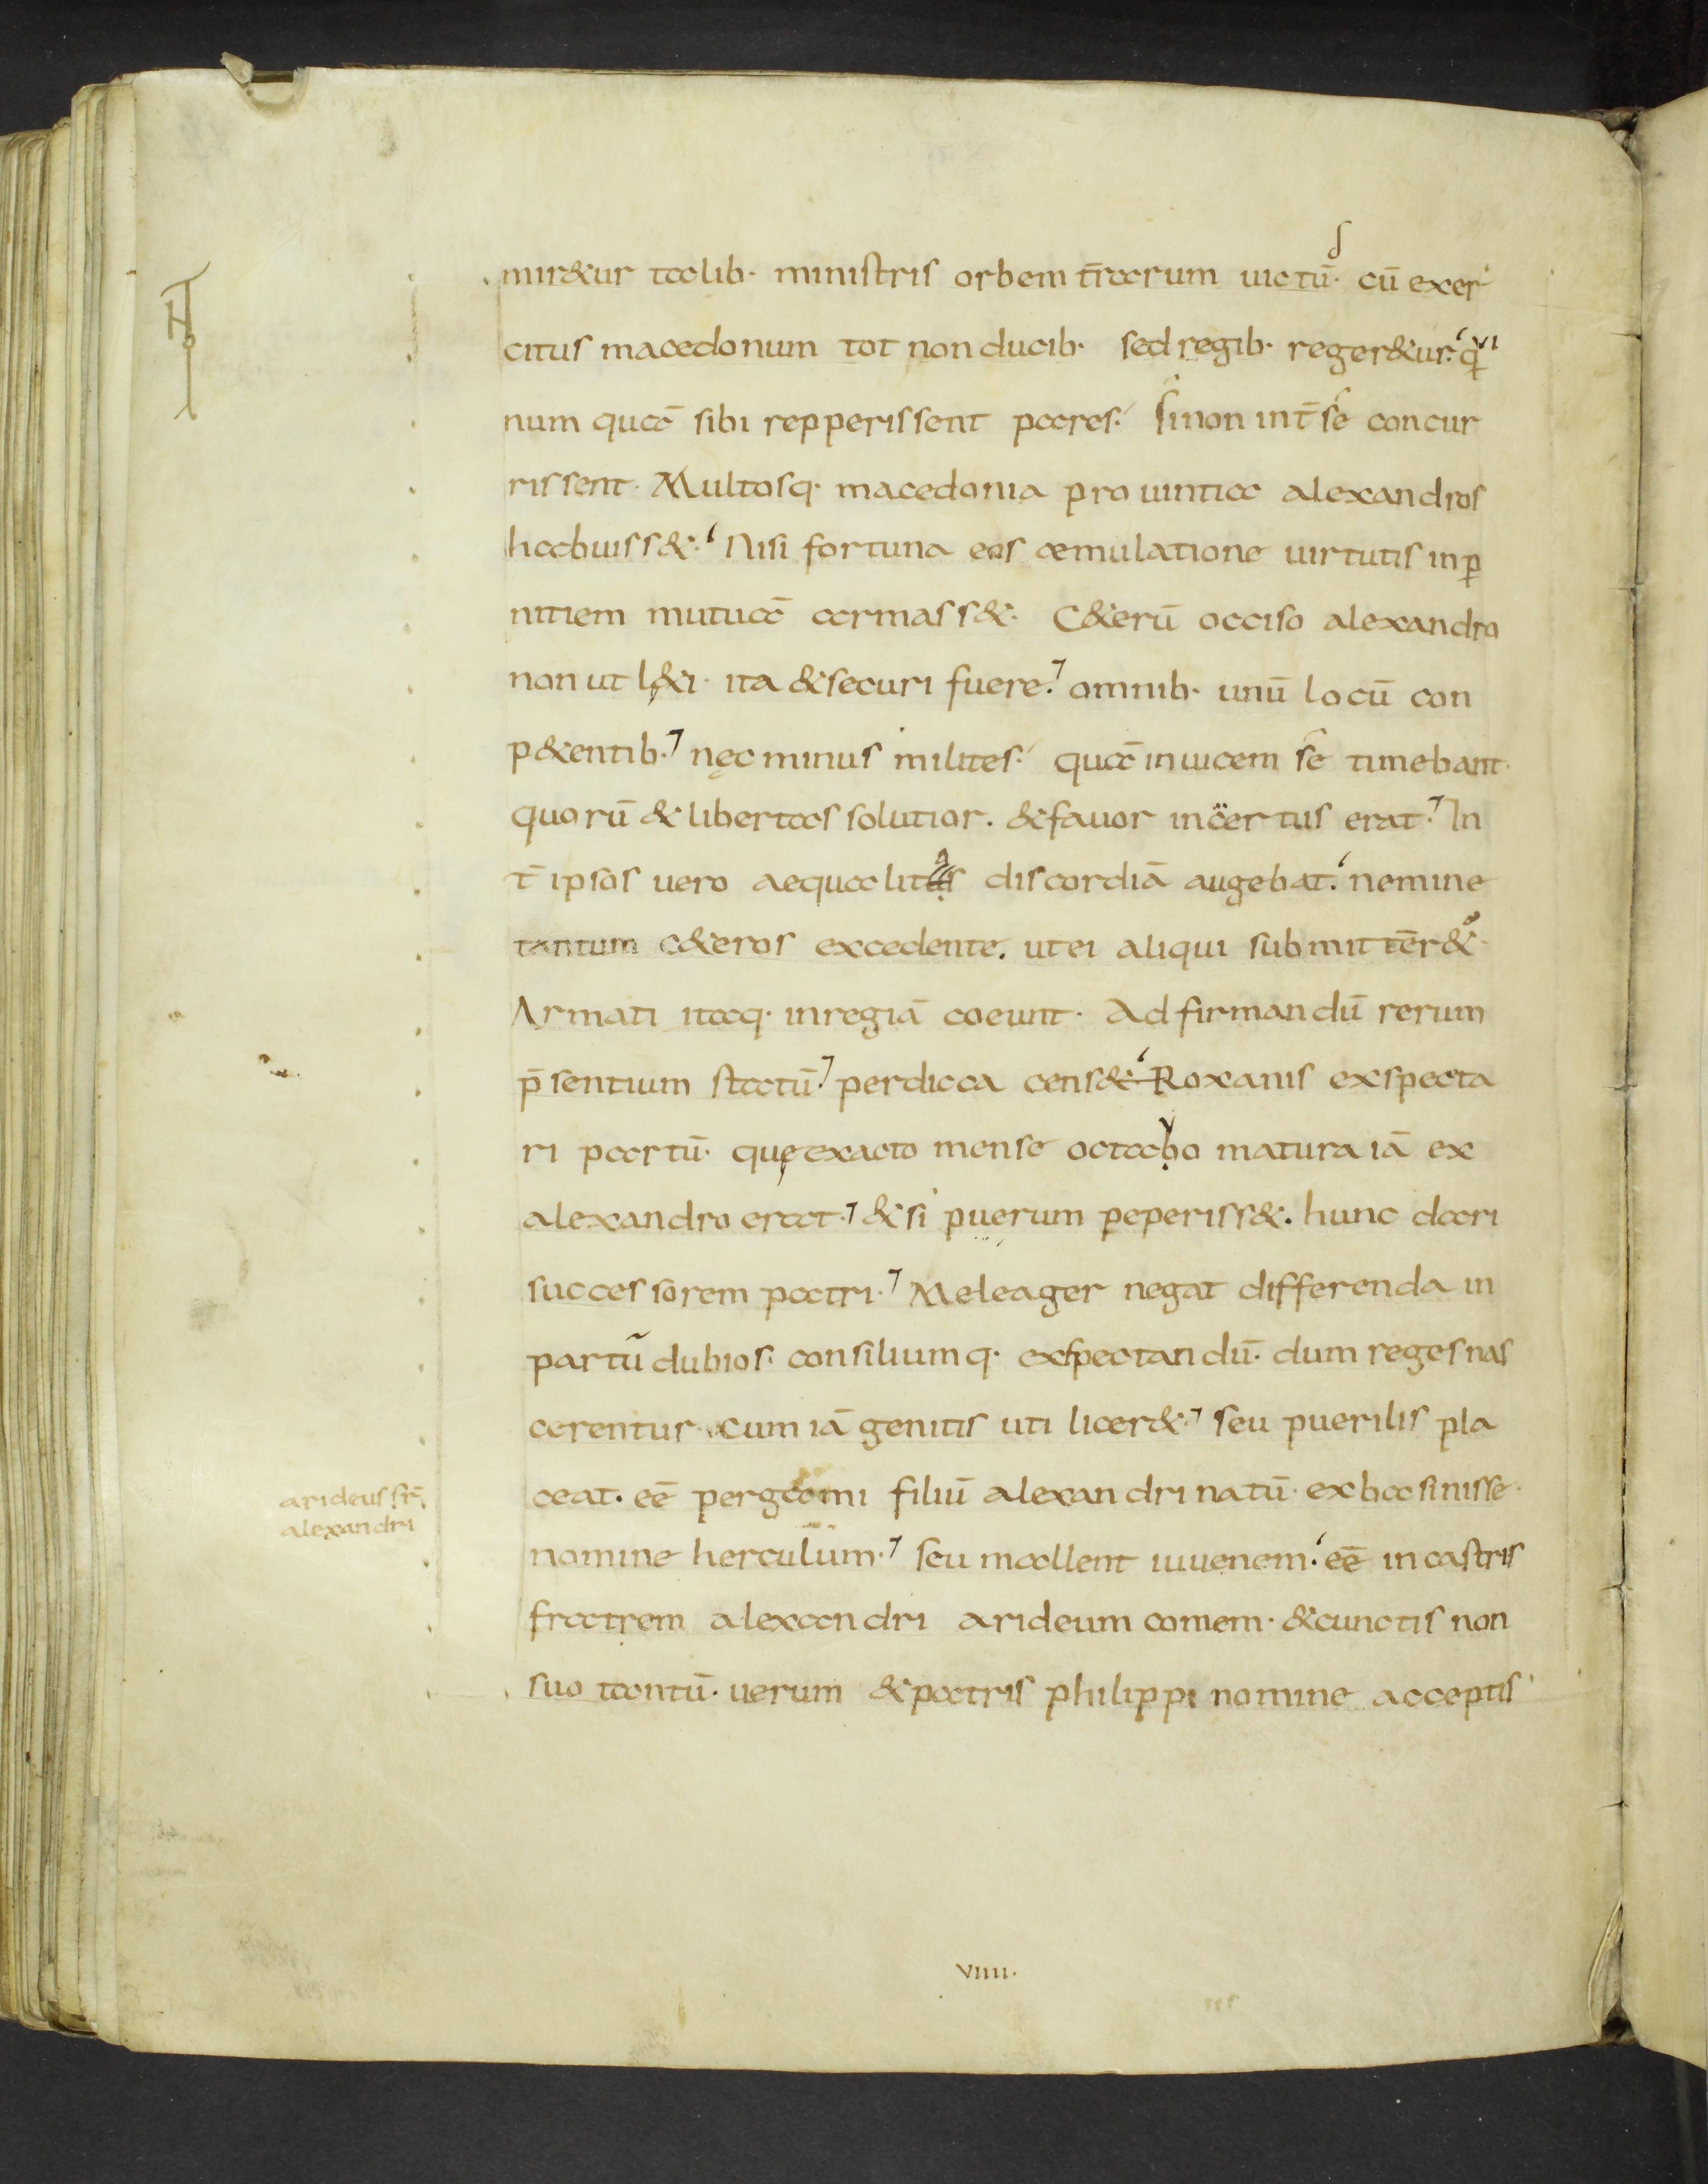 mir&ur talib· ministris orbem tr̄arum uictū· cū exer
citus macedonum tot non ducib· sed regib· reger&ur· qui
num quā sibi repperissent pares· si non int̄ se concur
rissent· Multosq· macedonia pro uintia alexandros
habuiss&· Nisi fortuna eos aemulatione uirtutis in ꝑ
nitiem mutuā armass&· C&erū occiso alexandro
non ut l&i· ita & securi fuere· omnib· unū locū con
p&entib· nęc minus milites· quā inuicem se timebant·
quorū & libertas solutior· & fauor incertus erat· In
t̄ ipsos uero aequalitas discordiā augebat· nemine
tantum c&eros excedente· ut ei aliqui submittēr&·
Armati itaq· in regiā coeunt· Ad firmandū rerum
p̄sentium statū· perdicca cens& Roxanis exspecta
ri partū· quę exacto mense octauo matura iā ex
alexandro erat· & si puerum peperiss&· hunc dari
successorem patri· Meleager negat differenda in
partū dubios· consiliumq· exspectandū· dum reges nas
cerentur· cum iā genitis uti licer&· seu puerilis pla
ceat· eē pergami filiū alexandri natū· ex hac sinisse·
nomine herculum· seu mallent iuuenem· eē in castris
arideus fr̄
alexandri
fratrem alexandri arideum comem· & cunctis non
suo tantū· uerum & patris philippi nomine acceptis
VIIII·